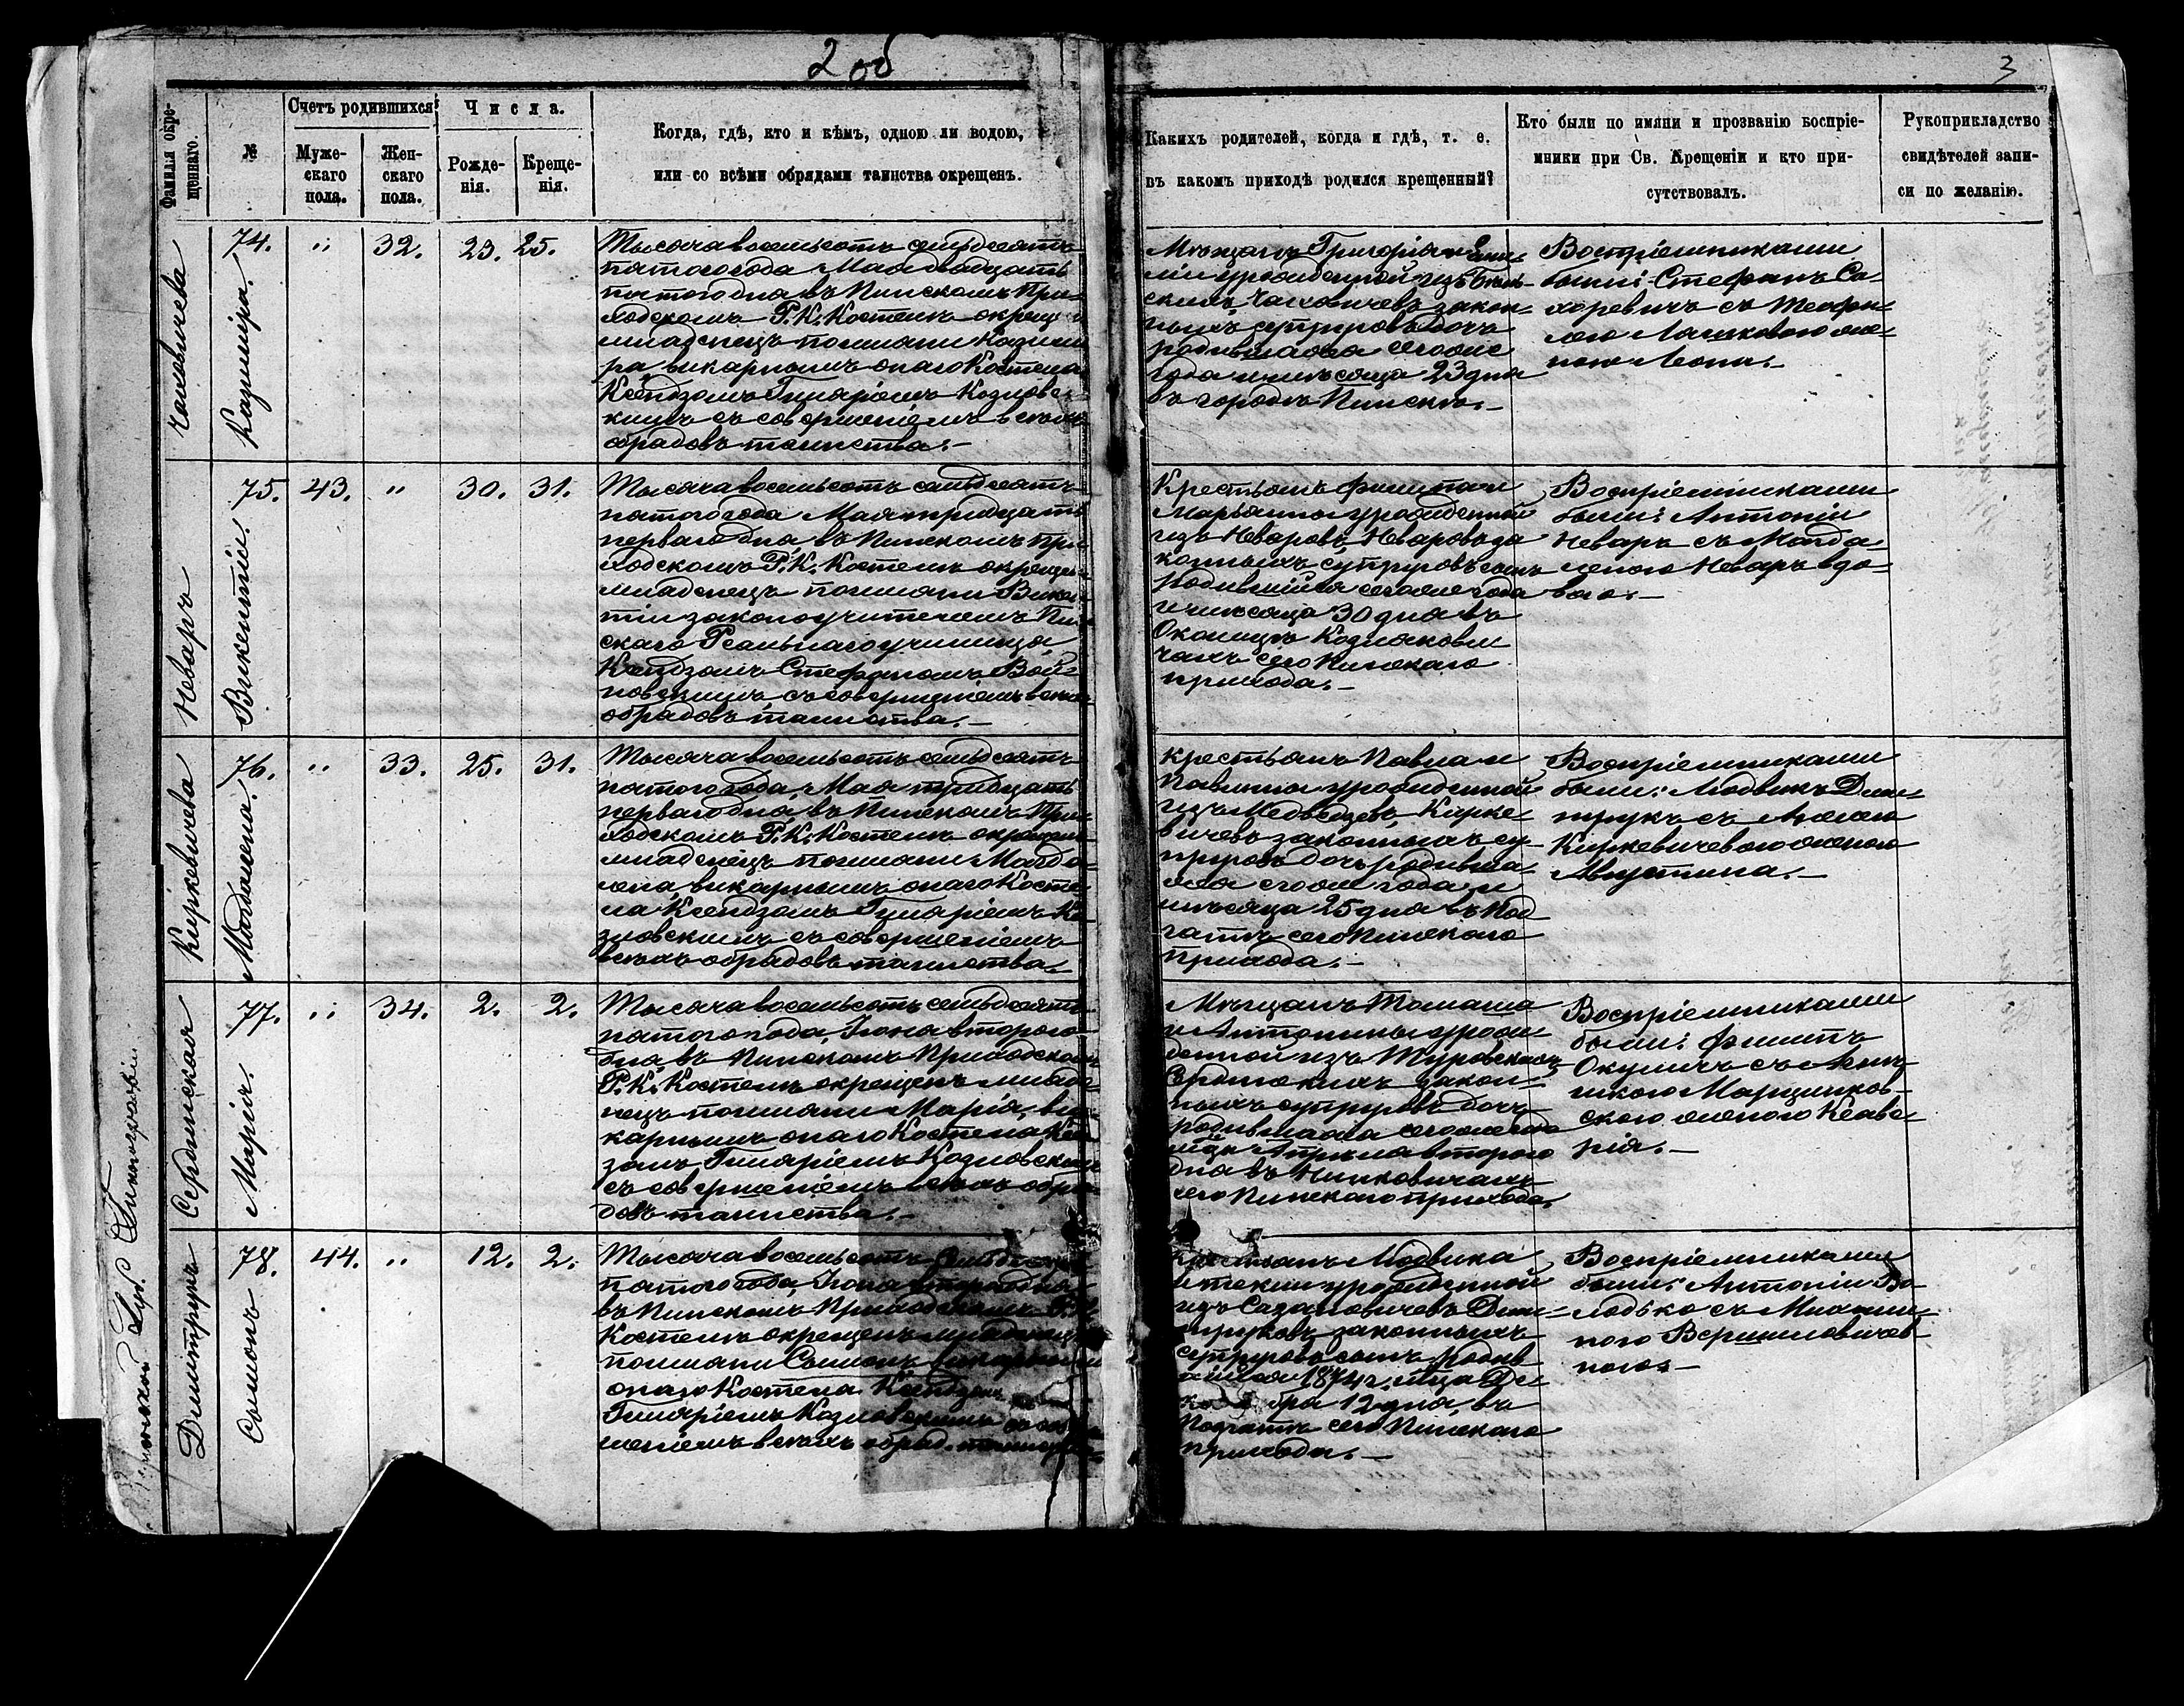 2 об
3
Фамилія окре-
щеннаго.
№
Счетъ родившихся
Муже-
скаго
пола.
Жен-
скаго
пола.
Числа.
Рожде-
нія.
Креще-
нія.
Когда, гдѣ, кто и кѣмъ, одною ли водою,
или со всѣми обрядами таинства окрещенъ.
Каких родителей, когда и гдѣ, т. е.
въ какомъ приходѣ родился крещенный?
Кто были по имяни и прозванію воспріе-
мники при Св. Крещеніи и кто при-
сутствовалъ.
Рукоприкладство
свидѣтелей запи-
си по желанію.
74.
Казиміра.
"
32.
23.
25.
Тысяча восемьсотъ семьдесятъ
пятого года Мая двадцать
пятого дня въ Пинскомъ При-
ходскомъ Р. К. Костелѣ окрещ
младенецъ по имяни Казими
ра, викарнымъ онаго Костела
Ксендзомъ Гиляріемъ Козловс-
кимъ съ совершеніемъ всѣхъ
обрядовъ таинства.-
Мѣщанъ Григорія и
ліи урожденной изъ
скихъ закон-
ныхъ супруговъ дочь
родившаяся сегоже
года и мѣсяца 23 дня
въ городѣ Пинскѣ.-
Воспріемниками
были: Стефанъ Са-
харевичъ съ Теофи-
лею же-
ною Леона.-
Неваръ
75.
Викентій.
43.
"
30.
31.
Тысяча восемьсотъ семьдесятъ
пятого года Мая тридцать
перваго дня въ Пинскомъ при
ходскомъ Р. К. Костелѣ окрещен
младенецъ по имяни Викен
тій законоучителемъ Пин
скаго Реальнаго училища
Ксендзомъ Стефаномъ Вой-
новскимъ съ совершеніемъ всѣхъ
обрядовъ таинства.-
Крестьянъ Филипа и
Марьянны урожденной
изъ Неваровъ Неваровъ за
конныхъ супруговъ сынъ
родившійся сегоже года
и мѣсяца 30 дня въ
Околицѣ Козляковы
чахъ сего Пинскаго
прихода.-
Воспріемниками
были: Антоній
Неваръ съ Магда-
леною Неваръ вдо-
вою.-
Киркевичева
76.
Магдалена.
"
33.
25.
31.
Тысяча восемьсотъ семьдесятъ
пятого года, Мая тридцать
перваго дня, въ Пинскомъ При
ходскомъ Р. К. Костелѣ окрещен
младенецъ по имяни Магда-
лена, викарнымъ онаго Косте-
ла Ксендзомъ Гиляріемъ Ко
зловскимъ съ совершеніемъ
всѣхъ обрядовъ таинства.-
Крестьянъ Павла и
Павлины урожденной
изъ Медведевъ Кирке
вичевъ законныхъ су-
пруговъ дочь родивша-
яся сегоже года и
мѣсяца 25 дня въ Пос
сего Пинскаго
прихода.-
Воспріемниками
были: Людвикъ Дми-
трукъ съ
Киркевичевою женою
Августина.-
Сердинская
77.
Марія.
"
34.
2.
2.
Тысяча восемьсотъ семьдесятъ
пятого года, Іюня второго
дня, въ Пинскомъ Приходском
Р. К. Костелѣ окрещенъ младе-
нецъ по имяни Марія, ви
карнымъ онаго Костела Ксен
зомъ Гиляріемъ Козловским
съ совершеніемъ всѣхъ обря
довъ таинства.-
Мѣщанъ Томаша
и Антонины урож
денной изъ Туровскихъ
закон-
ныхъ супруговъ дочь
родившаяся сегоже года
м-ца Апрѣля второго
дня въ
сего Пинскаго прихода.
Воспріемниками
были: Филипъ
Окуличъ съ
Марцинков-
скою женою Ксаве
рія.-
Дмитрукъ
78.
Сымонъ
44.
"
12.
2.
Тысяча восемьсотъ семьдесятъ
пятого года, Іюня второго дня
въ Пинскомъ Приходскомъ Р. К
Костелѣ окрещенъ младенецъ
по имяни Сымонъ викарным
онаго Костела Ксендзом
Гиляріемъ Козловскимъ со сов
шеніемъ всѣхъ обряд. таинства
Крестьянъ Людвика
и Теклии урожденной
изъ Сазановичевъ Дми-
труковъ законныхъ
супруговъ сынъ родив
шійся 1874 г. м-ца Де
ка бря 12 дня, въ
сего Пинскаго
прихода.-
Воспріемниками
были: Антоній Во
лодько съ Михали-
ною
ною.-